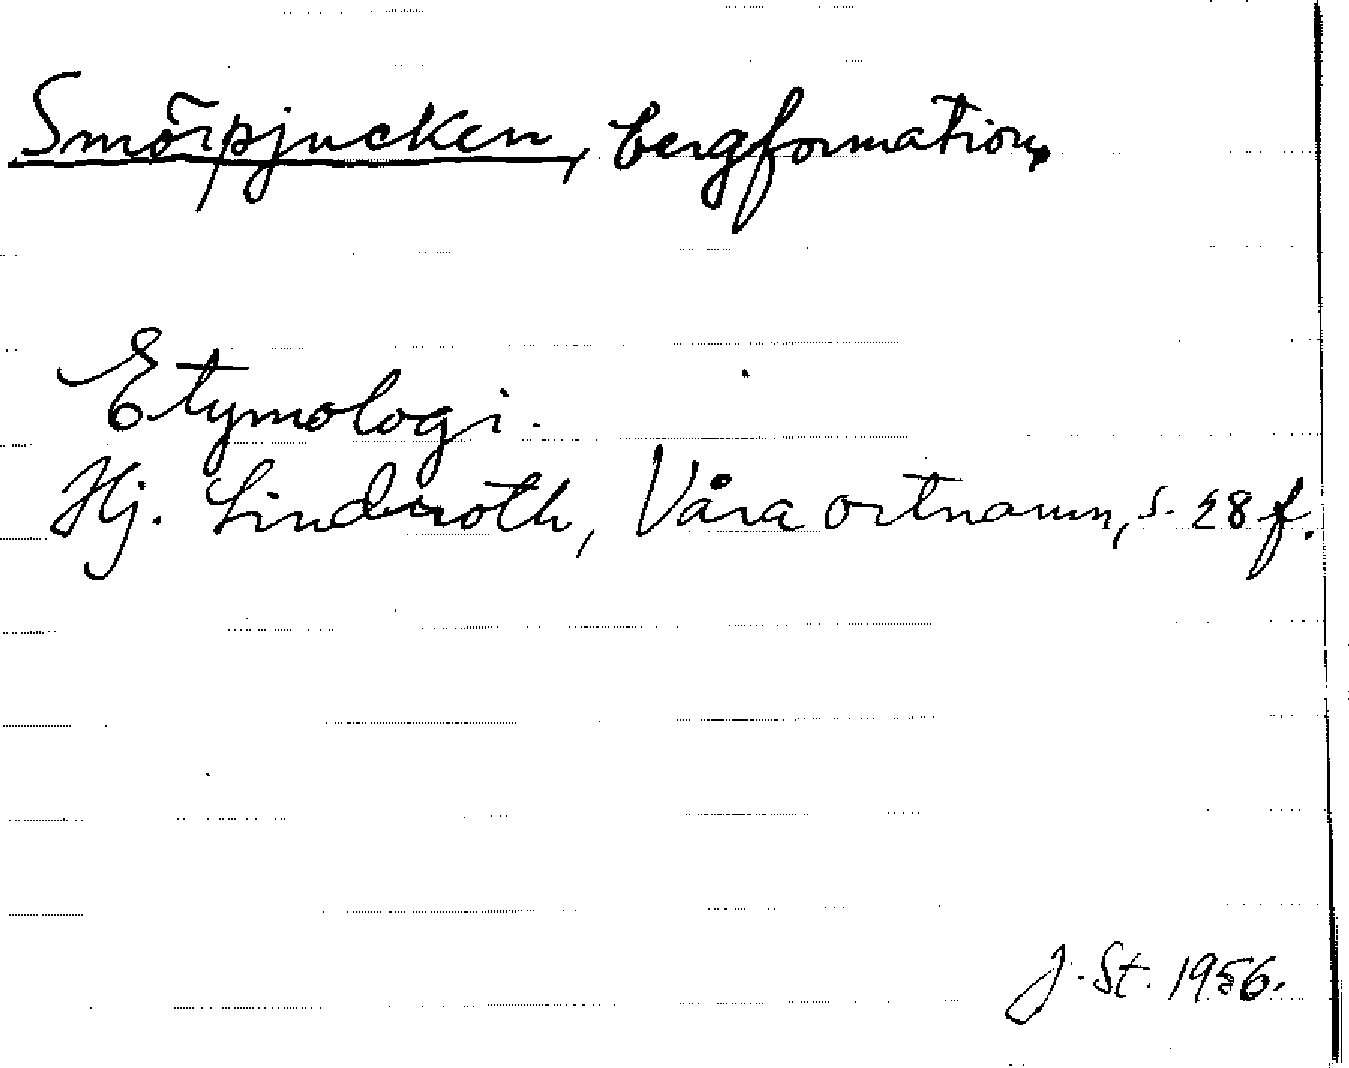 Smörpjucken, bergformation,
Etymologi.
Hj. Lindroth, Våra ortnamn, s. 28 f.
J. St. 1956.